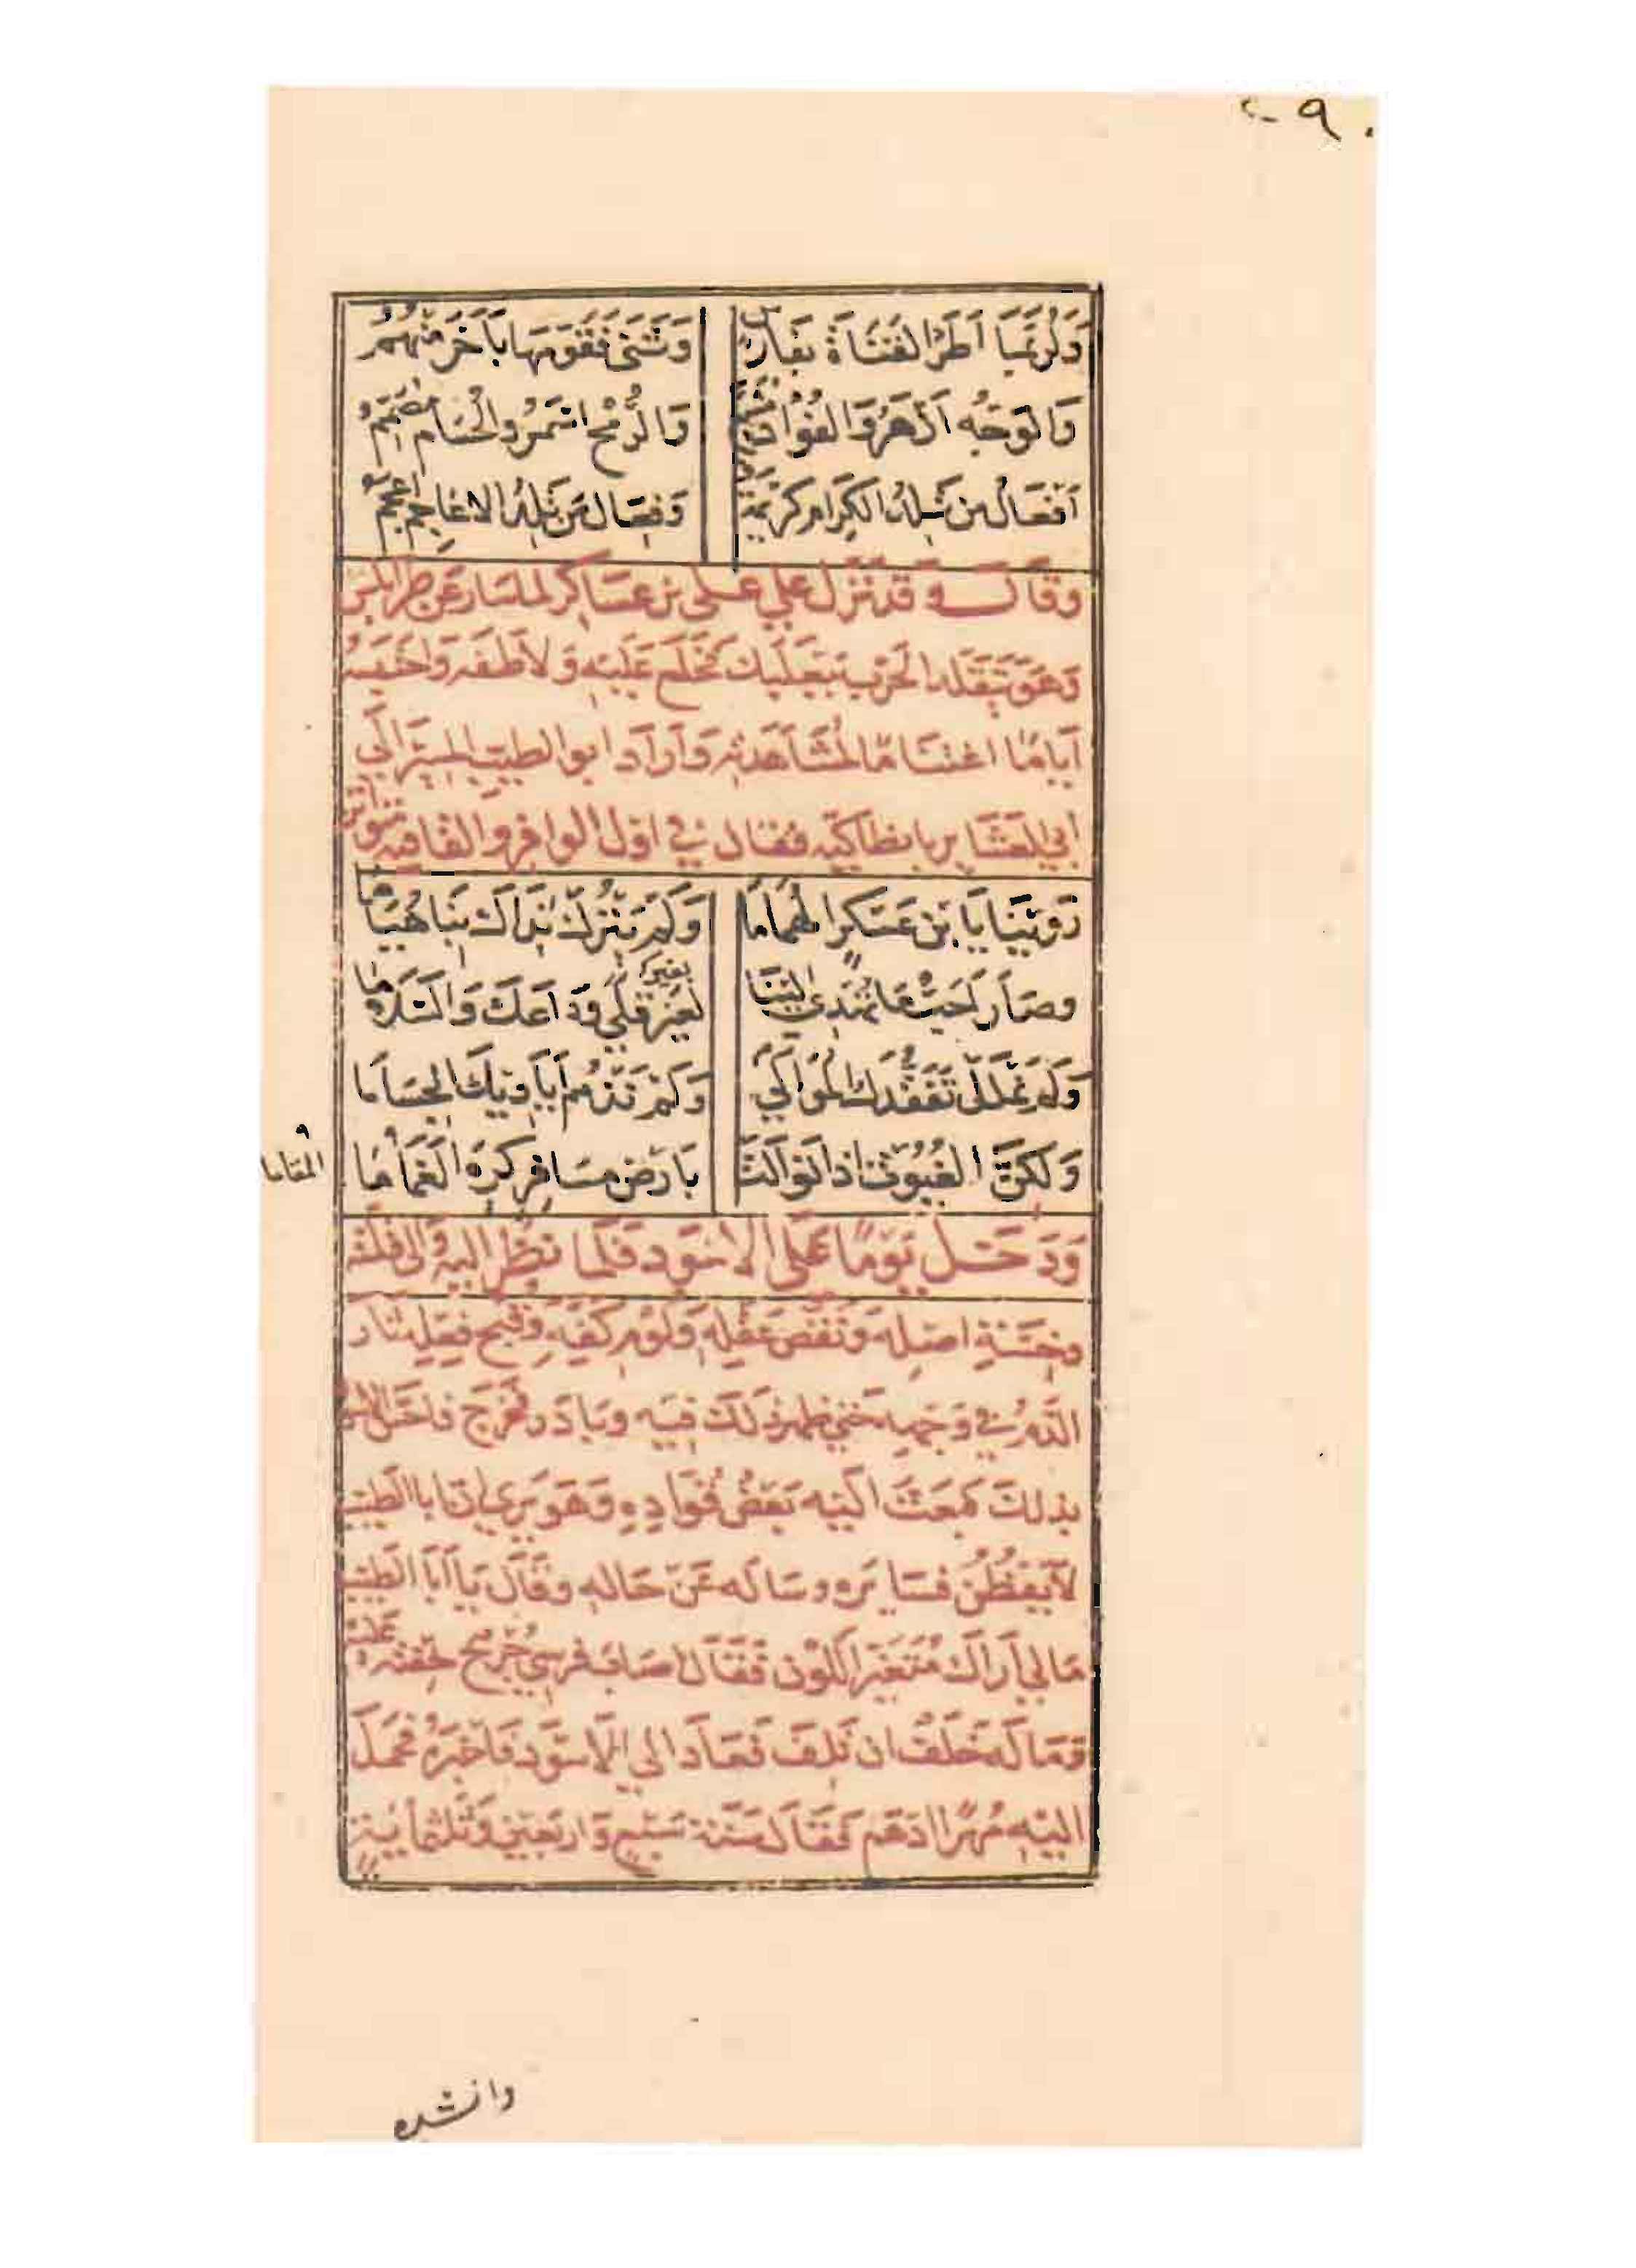 ٢٠٩
وَلَرُبَّمَا اَطَرَ القَنَاةَ بفَارِسٍ وَثَنَى فَقَوَمَهَا بآخَرَ مِنْهُمُ
وَالوَجْهُ اَزْهَرُ وَالفُؤَادُ مُشَيَّعٌ وَالرُّمْحُ اسْمَرُ وَالْحُسَامُ مُصَمِّمُ
اَفعَالُ مَن تَلِدُ الكِرَامُ كَرِيمَةٌ وَفِعَالُ مَن تَلِدُ الاعَاجِمُ اَعْجَمُ
وقال وقد نزل على على بن عسَاكر
وَهوَ يَتقلد الحَرْب ببَعْلَبك فخَلَعَ عَلَيْهِ وَلاَطفَه وَاحتبسَهُ
اَيامًا اغتنَامًا لمُشَاهَدَتِه وَاَرَادَ ابو الطيب المسِيرَ اِلى
اَبي العَشَاير بانطاكيَه فقال في اول الوافر والقافيه متواتر
رَوِينَا يَا بْنَ عَسْكَرٍ الهُمَامَا وَلَمْ يَتْرُكْ نَدَاكَ بِنَا هُيَامَا
وصَارَ اَحَبُّ مَا تُهْدِي اِلَيْنَا لِغَيْرِ قِلًى وَدَاعَكَ وَالسَّلامَا
بغير
وَلَمْ نَمْلَلْ تَفَقُّدَكَ المَوَالِي وَلَمْ نَذْمُمْ اَيَادِيكَ الجِسَامَا
وَلَكِنَّ الغُيُوثَ اِذا تَوَالَتْ بِاَرْضِ مسَافِرٍ كَرِهَ الغَمَامَا
المقاما
وَدَخَلَ يَومًا عَلَى الاسْوَد فَلَمَا نظَرَ اليهِ وَالى قلته
وخِسَّةِ اصْلِه وَنَقْصِ عَقْلِهِ وَلُؤم كَفِّهِ وَقُبْح فِعْلِهِ ثار
الدَّمُ في وَجْهِه حَتى ظهر ذَلكَ فيه وبَادَر فخَرَجَ
بذلكَ فبَعَثَ اليه بَعْضَ قُوَّادِهِ وَهوَ يَرَى ان ابا الطيب
لا يَفْطُنُ فسَايره وسَاله عَنْ حَالهِ وقَالَ يَا اَبَا الطيب
مَالي اَرَاكَ مُتَغَيّرَ اللَوْن فَقَالَ اصَابَ فرسِي جُرْحٌ خِفتُه عَليْه
وَمَا لَه خَلَفٌ ان تَلِفَ فَعَادَ الى الاسْوَد فَاخبَرهُ فحَملَ
اليْهِ مُهْرًا ادهَم فَقَالَ سَنَة سَبْع وَاربَعِين وَثَلثمايَة
وانشده